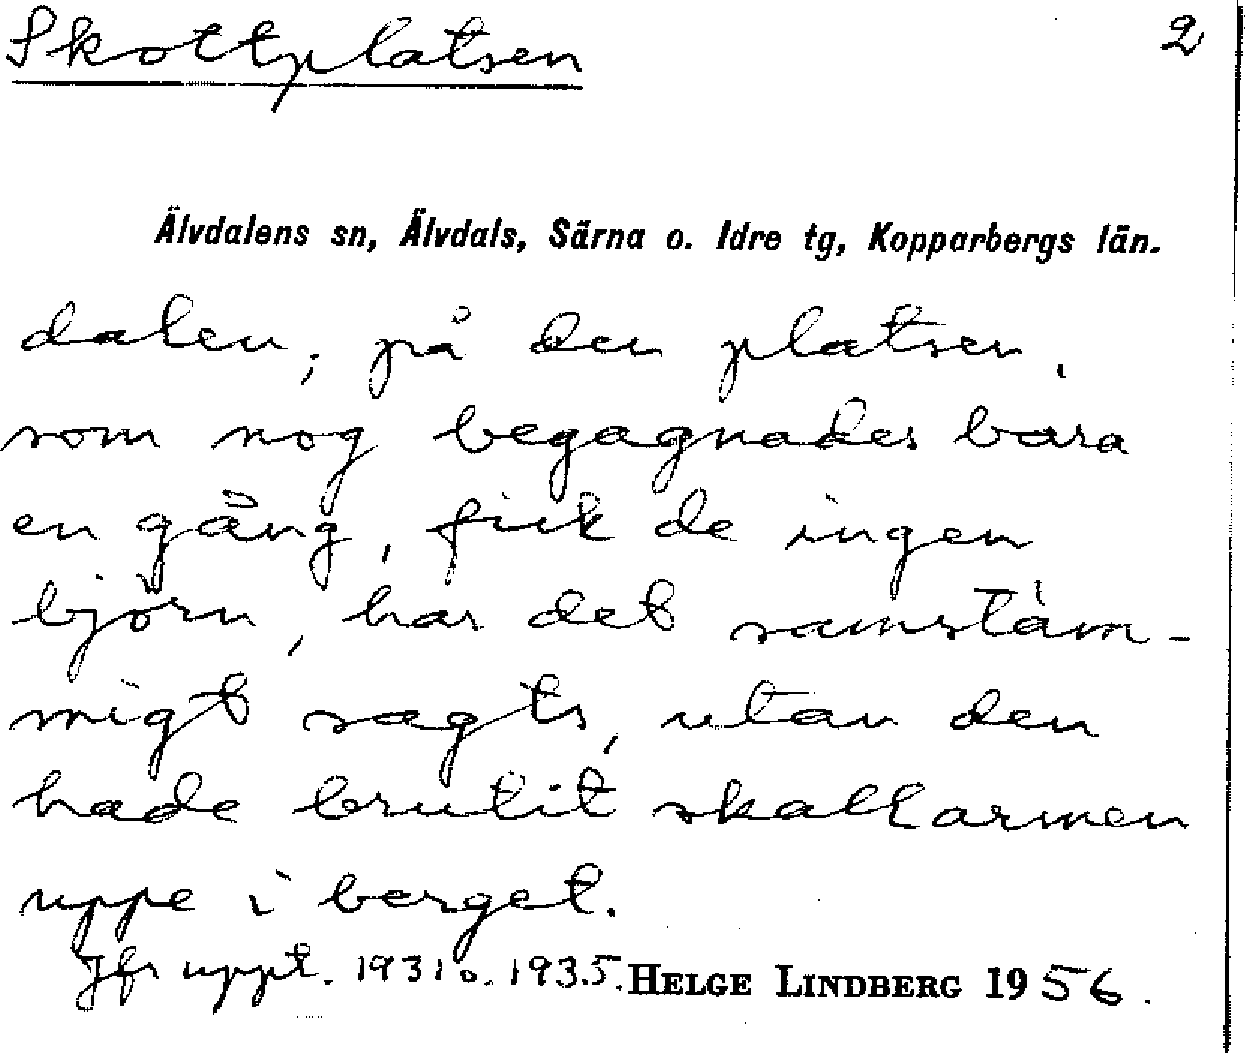 Skottplatsen 2
Älvdalens sn, Älvdals, Särna o. Idre tg, Kopparbergs län.
dalen; på den platsen,
som nog begagnades bara
en gång, fick de ingen
björn, har det samstäm-
migt sagts, utan den
hade brutit skallarmen
uppe i berget.
Jfr uppt. 1931 o. 1935. HELGE LINDBERG 1956.